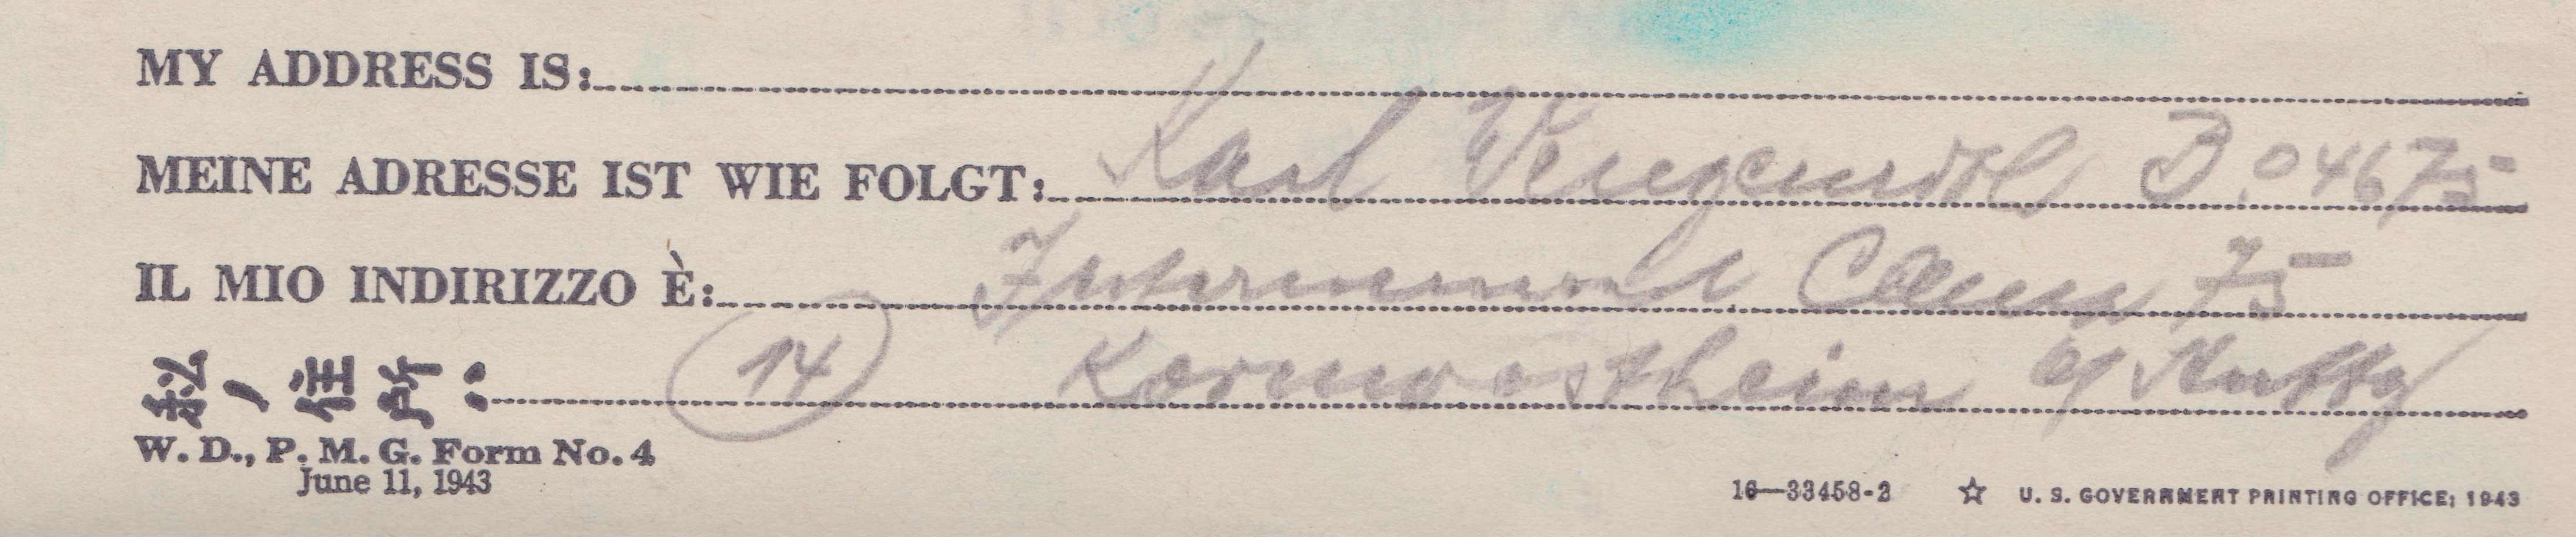 MY ADDRESS IS:
MEINE ADRESSE IST WIE FOLGT: Karl B. 04675
IL MIO INDIRIZZO È: Camp 75
私ノ住所: 14 Kornwestheim b/ Stuttg
W. D., P. M. G. Form No. 4
June 11, 1943
16—33458-2 ☆ U. S. GOVERNMENT PRINTING OFFICE: 1943